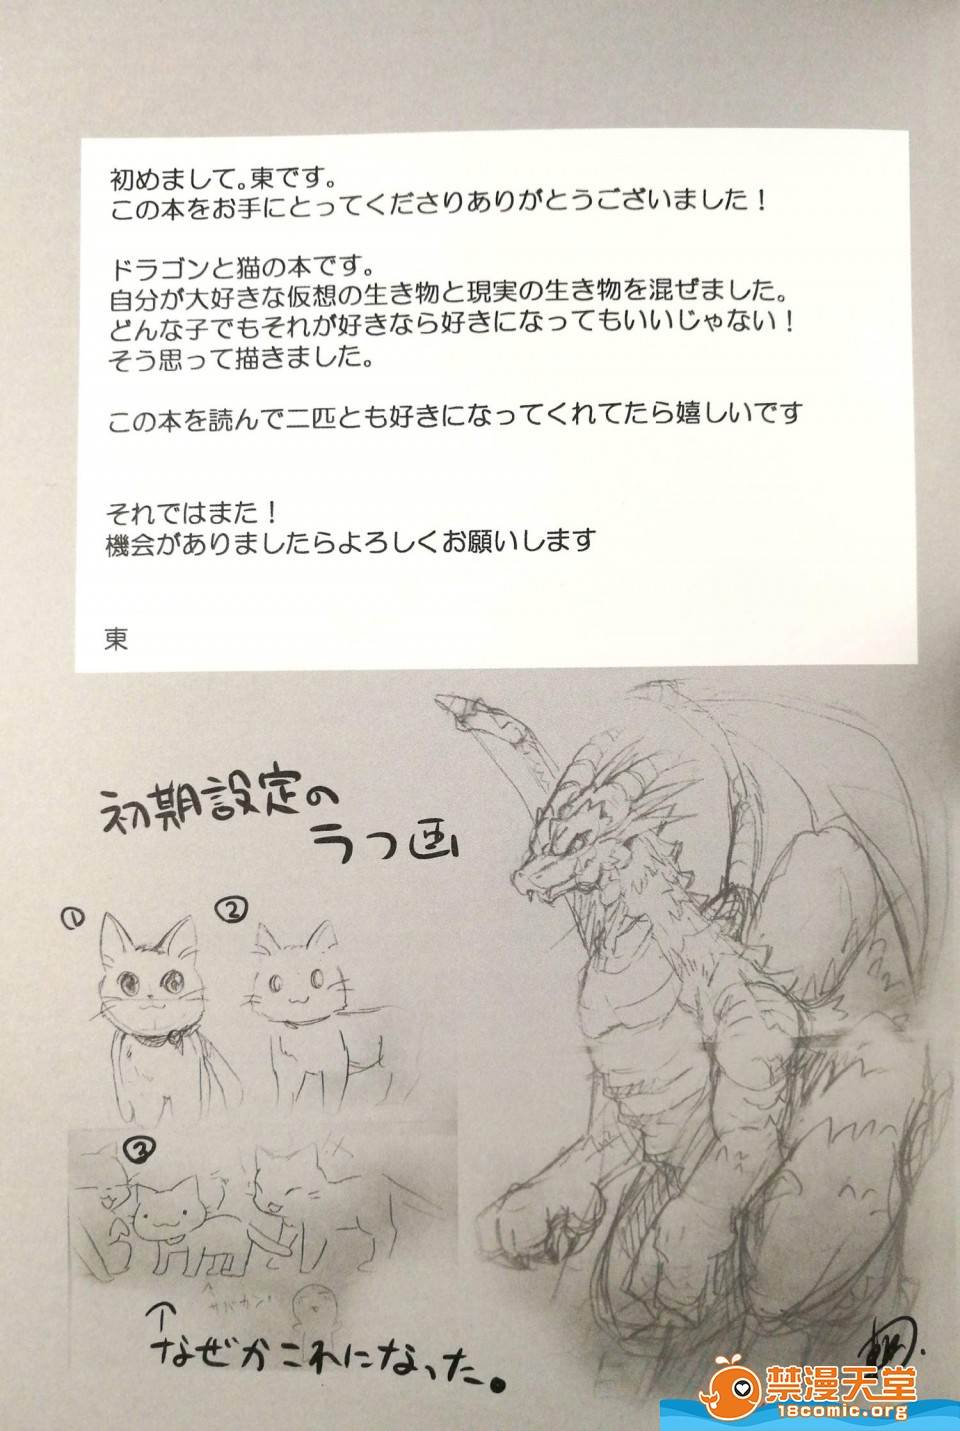 初めまして。東です。
この本をお手にとってくださりありがとうございました！
ドラゴンと猫の本です。
自分が大好きな仮想の生き物と現実の生き物を混ぜました。
どんな子でもそれが好きなら好きになってもいいじゃない！
そう思って描きました。
この本を読んで二匹とも好きになってくれてたら嬉しいです
それではまた！
機会がありましたらよろしくお願いします
東
初期設定の
ラフ画
①
②
③
↑
なぜかこれになった。
禁漫天堂
18comic.org